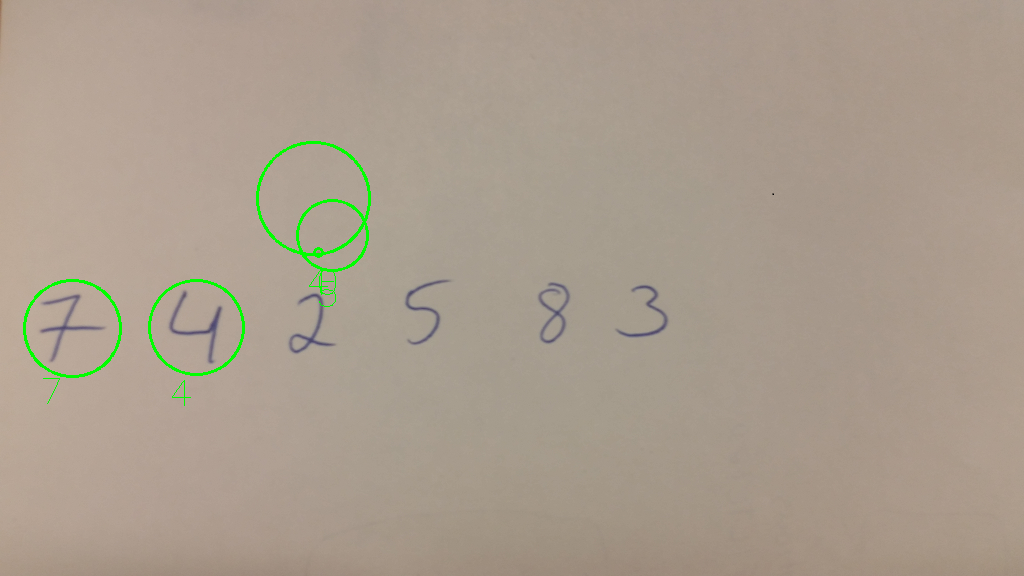 7 4 2 5 8 3
7 4